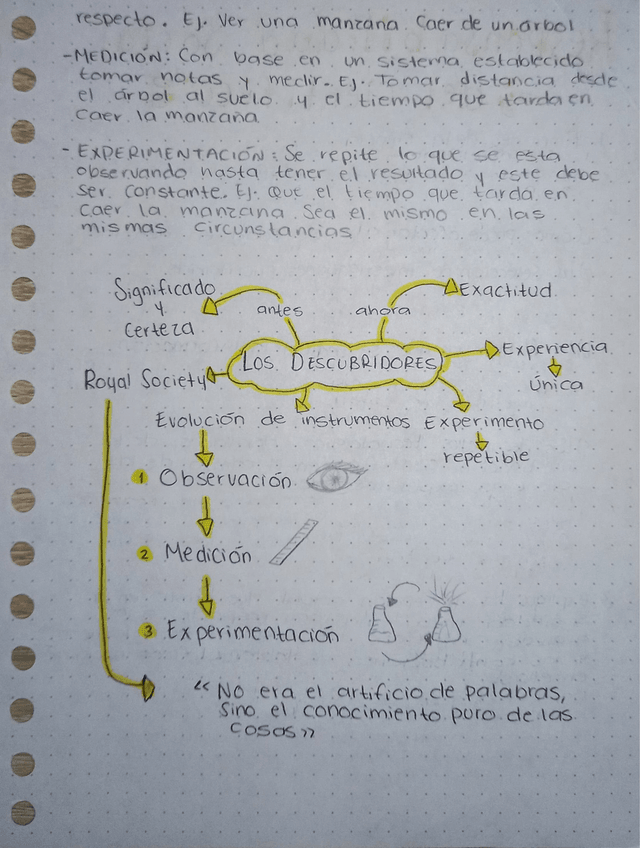 respecto. Ej. Ver una manzana caer de un arbol
-MEDICIÓN: Con base en un sistema establecido
tomar notas y medir. Ej. Tomar distancia desde
el árbol al suelo y el tiempo que tarda en
caer la manzana
- EXPERIMENTACIÓN: Se repite lo que se esta
observando hasta tener el resultado y este debe
ser constante. Ej. Que el tiempo que tarda en
caer la manzana sea el mismo en las
mismas circunstancias
Significado
y
certeza
antes
ahora
Exactitud
LOS DESCUBRIDORES
Experiencia
única
Royal Society
Evolución de instrumentos
Experimento
repetible
1 Observación
2 Medición
3 Experimentación
"No era el artificio de palabras,
sino el conocimiento puro de las
cosas"